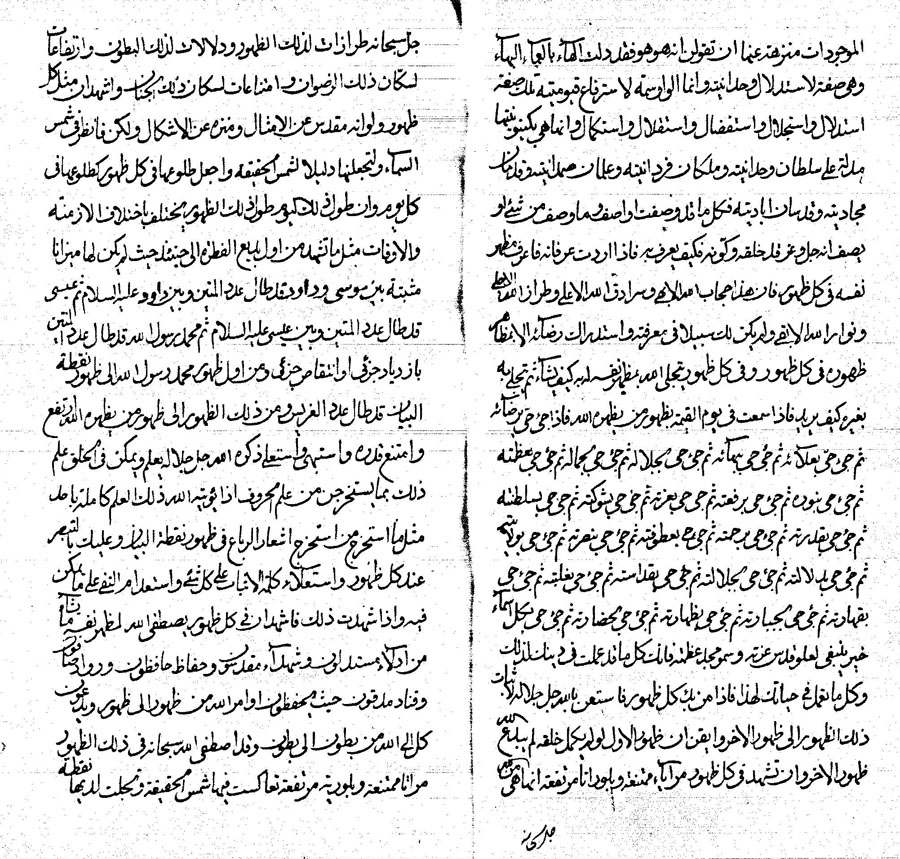 الموجودات منزهة عنها ان تقولن انه هو هو فقد دلت الهاء بالهاء البهاء
وهي صفة لاستدلال وحدانيته وانما الواو سمة لاسترفاع قيوميته تلك صفة
استدلال واستجلال واستفضال واستقلال واستكمال وانما هي بكينونيتها
مدلة على سلطان وحدانيته وملكان فردانيته وعلمان صمدانيته وقدران
مجاديته وقدسان ابا ديته فكل ما قد وصفت او اصف وما وصف من شئ لو
يصف انه جل وعز قد خلقه وكونه فكيف يعرف به فاذا اردت عرفانه فاعرف مظهر
نفسه في كل ظهور فان هذا حجاب الله الابهى وسرادق الله الاعلى وطراز الله
ونوار الله الابقى ولم يكن لك سبيلا في معرفته واستدراك رضائه الا بمظاهر
ظهوره في كل ظهور وفي كل ظهور تجلى الله بمظهر نفسه له به كيف يشاء ثم تجلى به
بغيره كيف يريد فاذا سمعت في يوم القيمة بظهور من يظهره الله فاذا جئ جئ برضائه
ثم جئ جئ بعلائه ثم جئ جئ بسمائه ثم جئ جئ بجلاله ثم جئ جئ بجماله ثم جئ جئ بعظمته
ثم جئ جئ بنوره ثم جئ جئ برفعته ثم جئ جئ بعزته ثم جئ جئ بشوكته ثم جئ جئ بسلطنته
ثم جئ جئ بقدرته ثم جئ جئ برحمته ثم جئ جئ بعطوفته ثم جئ جئ بنصرته ثم جئ جئ بولايته
ثم جئ جئ بدلالته ثم جئ جئ بجلالته ثم جئ جئ بقداسته ثم جئ جئ بغلبته ثم جئ جئ
بقهاريته ثم جئ جئ بجباريته ثم جئ جئ بظهاريته ثم جئ جئ ثم جئ جئ بكل اسماء
خير ينبغي لعلو قدس عزته وسمو مجد عظمته فانك كل ما قد عملت في دينك لذلك
وكل ما تعمل في حياتك لهذا فاذا من بك كل ظهور فاستعن بالله جل جلاله لاثبات
ذلك الظهور الى ظهور الاخر وايقن ان ظهور الاول لو لم يكمل خلقه لم يبلغ الله
ظهور الاخر وان تشهد في كل ظهور مرآياء ممتنعة وبلورانا مرتفعة انما هي من
جل سبحانه
جل سبحانه طرازات لذلك الظهور ودلالات لذلك البطون وارتفاعات
لسكان ذلك الرضوان وامتناعات لسكان ذلك الجنان واشهد ان مثل كل
ظهور ولو انه مقدس عن الامثال ومنزه عن الاشكال ولكن فانظر في شمس
السماء ولتجعلنها دليلا لشمس الحقيقة واجعل طلوعها في كل ظهور كطلوعها في
كل يوم وان طول ذلك اليوم طول ذلك الظهور يختلف باختلاف الازمنه
والاوقات مثل ما تشهد من اول بديع الفطرة الى حينئذ حيث لم يكن لها ميزانا
مثبتة بين موسى وداود قد طال عدد المئين وبين داود عليه السلام ثم عيسى
قد طال عدد المئين وبين عيسى عليه السلام ثم محمد رسول الله قد طال عدد المئين
بازدياد جزئي او انتقاص جزئي ومن اول ظهور محمد رسول الله الى ظهور نقطة
البيان قد طال عدد الغرس ومن ذلك الظهور الى ظهور من يظهره الله ارتفع
وامتنع قدره واستبهى واستعلى ذكره الله جل جلاله يعلم ويمكن في الخلق علم
ذلك بما يستخرجن من علم الحروف اذا يؤتيه الله ذلك العلم كاملة باحد
مثل ما استخرج من استخرج اشعار الرباع في ظهور نقطة البيان وعليك بالتبصر
عند كل ظهور واستعلاء كلمة الاثبات على كل شئ واستعدام النفي على ما يمكن
فيه واذا شهدت ذلك فاشهد ان في كل ظهور يصطفى الله لمظهر نفسه ما شاء
من ادلاء مستدلون وشهداء مقدسون وحفاظ حافظون ورواد
وقناد مدقون حيث يحفظون اوامر الله من ظهور الى ظهور ويدعون
كل الى الله من بطون الى بطون وقد اصطفى الله سبحانه في ذلك الظهور
مرآتا ممتنعة وبلورية مرتفعة تعاكست فيها شمس الحقيقة وتجلت لديها نقطة